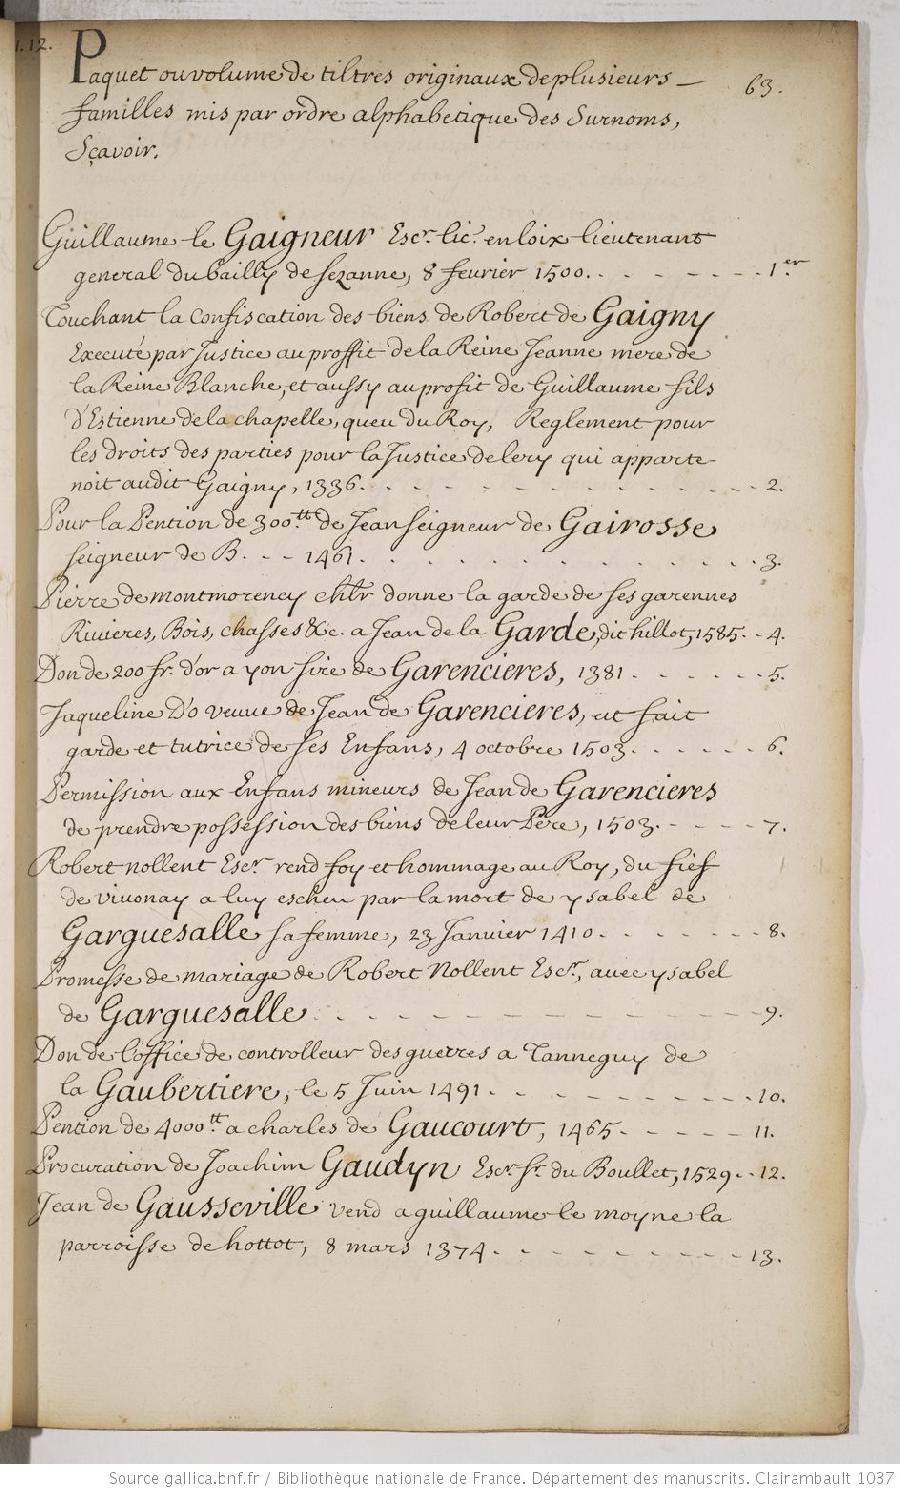 1.12.
63.
Paquet ou volume de tiltres originaux de plusieurs
familles mis par ordre alphabetique des Surnoms,
Sçavoir.
Guillaume le Gaigneur Escr. lic. en loix lieutenant
general du bailly de Sezanne, 8 fevrier 1500. . - - - - - - 1.er
Touchant la Confiscation des biens de Robert de Gaigny
Executé par Justice au proffit de la Reine Jeanne mere de
la Reine Blanche, et aussy au profit de Guillaume fils
d'Estienne de la chapelle, queu du Roy, Reglement pour
les droits des parties pour la Justice de lery qui apparte
noit audit Gaigny, 1336. - - - - - - - - - - - - 2.
Pour la Pention de 300.tt de Jean seigneur de Gairosse
seigneur de B. - - 1461. . . . . . . . . . . . . 3.
Pierre de montmorency chlr donne la garde de ses garennes
Rivieres, Bois, chasses &c. a Jean de la Garde, dit hillot, 1585. - 4.
Don de 200 fr. d'or a yon sire de Garencieres, 1381 . - - - - - - 5.
Jaqueline D'o veuve de Jean de Garencieres, ut fait
garde et tutrice de ses Enfans, 4 octobre 1503. - - - - - 6.
Permission aux Enfans mineurs de Jean de Garencieres
de prendre possession des biens de leur Pere, 1503. - - - - 7.
Robert nollent Escr. rend foy et hommage au Roy, du fief
de vivonay a luy escheu par la mort de ysabel de
Garguesalle sa femme, 23 Janvier 1410. - - - - - - 8.
Promesse de mariage de Robert Nollent Escr., avec ysabel
de Garguesalle . - - - - - - - - - - - - 9.
Don de l'office de controlleur des guerres a Tanneguy de
la Gaubertiere, le 5 Juin 1491. - - - - - - - - - 10.
Pention de 4000.tt a charles de Gaucourt, 1465. - - - - - 11.
Procuration de Joachim Gaudyn Escr. Sr. du Boullet, 1529. - 12.
Jean de Gausseville vend a guillaume le moyne la
parroisse de hottot, 8 mars 1374. - - - - - - - - - 13.
Source gallica.bnf.fr / Bibliothèque nationale de France. Département des manuscrits. Clairambault 1037